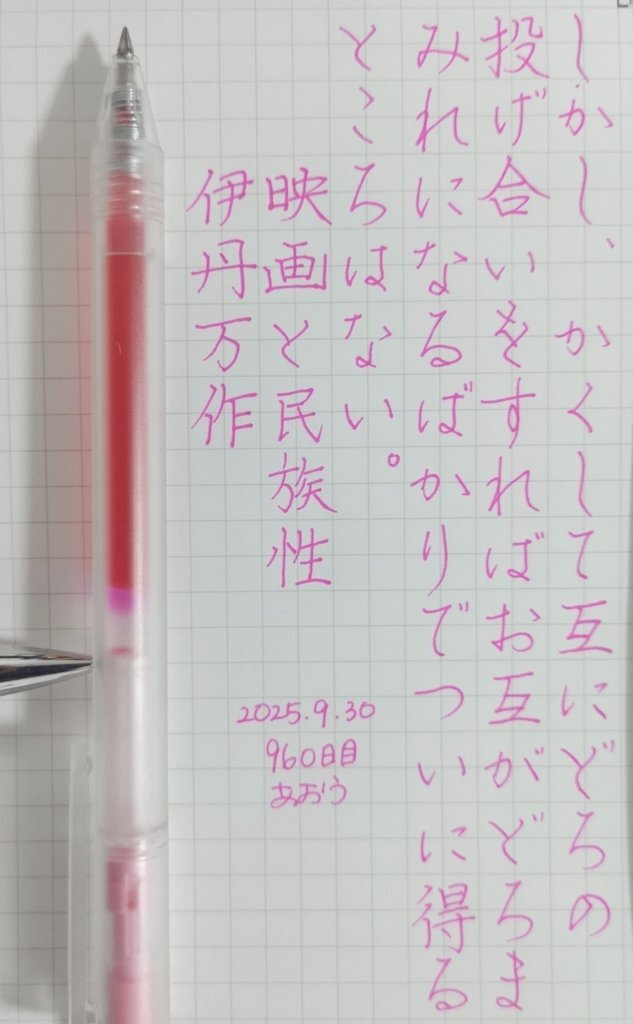 しかし、かくして互にどろの
投げ合いをすればお互がどろま
みれになるばかりでついに得る
ところはない。
映画と民族性
伊丹万作
2025.9.30
960日目
あおう